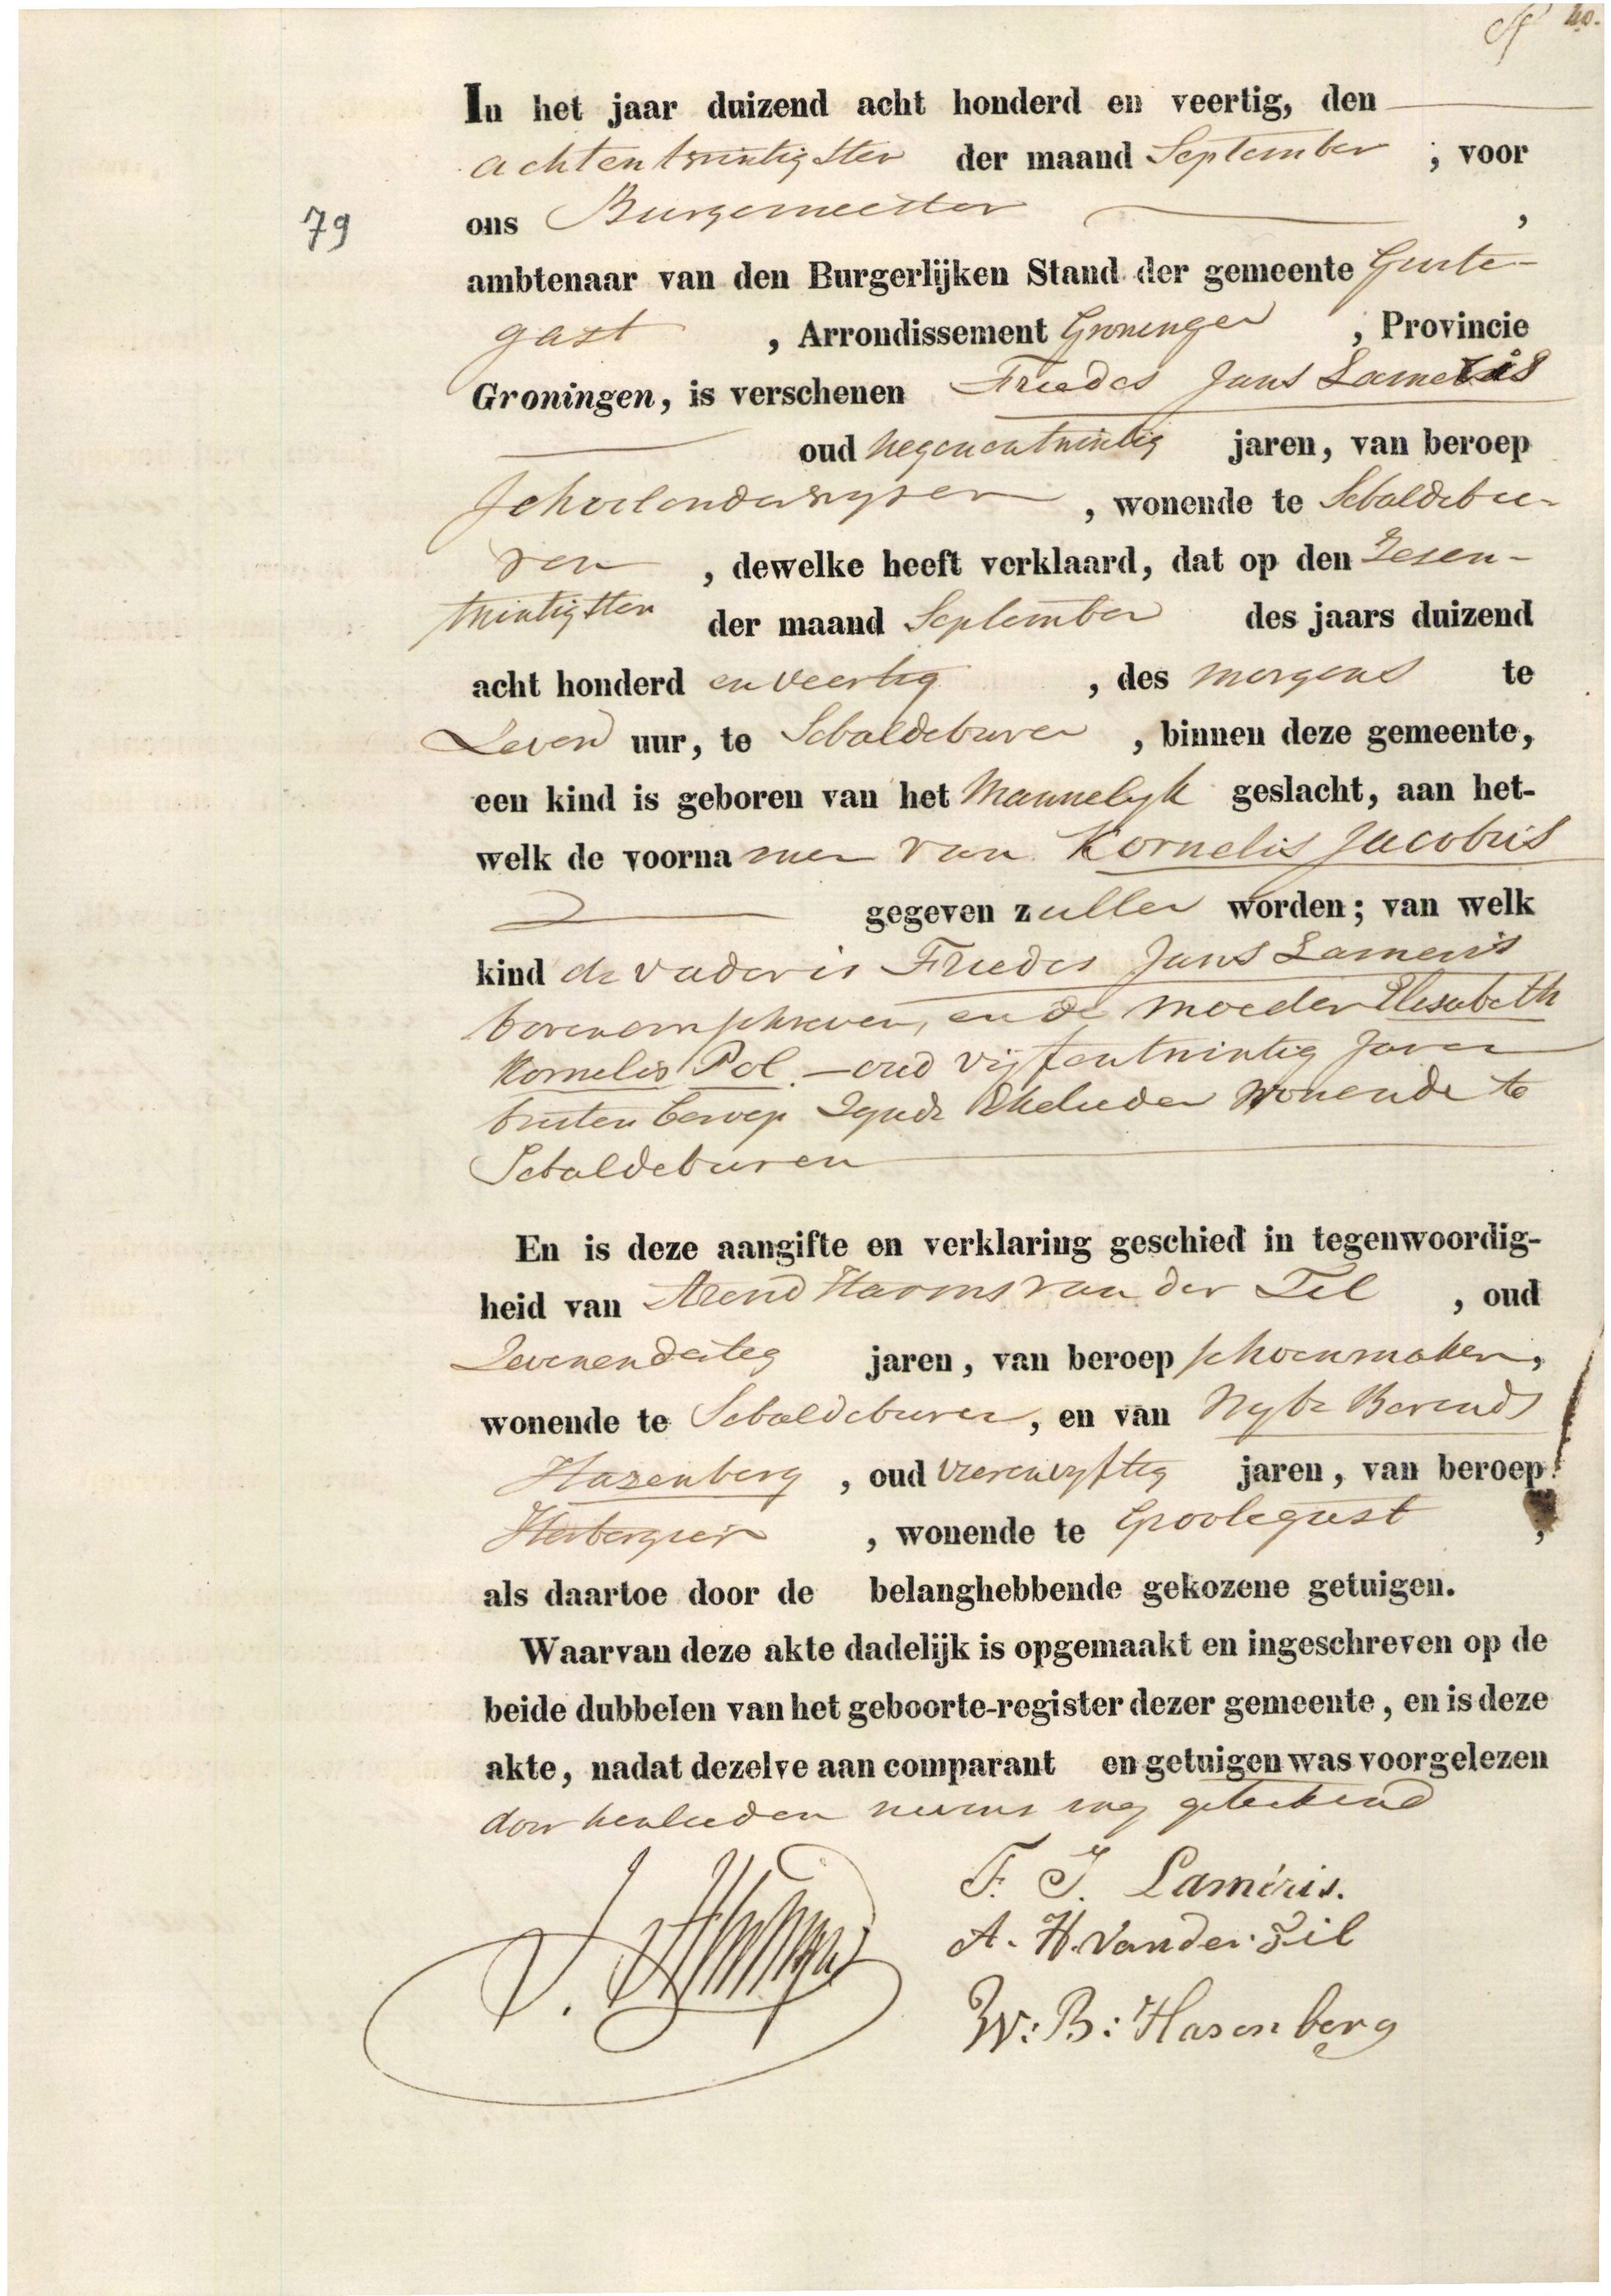 40.
In het jaar duizend acht honderd en veertig, den
achtentwintigsten der maand September , voor
79
ons Burgemeester ,
ambtenaar van den Burgerlijken Stand der gemeente Grote-
gast , Arrondissement Groningen , Provincie
Groningen, is verschenen Friedes Jans Lameris
oud negenentwintig jaren, van beroep
Schoolonderwyser , wonende te Sebaldebu-
ren , dewelke heeft verklaard, dat op den Zesen-
twintigsten der maand September des jaars duizend
acht honderd en veertig , des morgens te
Zeven uur, te Sebaldeburen , binnen deze gemeente,
een kind is geboren van het Mannelyk geslacht, aan het-
welk de voornamen van Kornelis Jacobus
gegeven zullen worden; van welk
kind de vader is Friedes Jans Lameris
bovenomschreven, en de moeder Elisabeth
Kornelis Pol. – oud vijfentwintig Jaren
buiten beroep Zynde Ehelieden wonende te
Sebaldeburen
En is deze aangifte en verklaring geschied in tegenwoordig-
heid van Arend Harms van der Til , oud
Zevenendertig jaren, van beroep schoenmaker,
wonende te Sebaldeburen , en van Wybe Berends
Hazenberg , oud vierenvyftig jaren, van beroep
Herbergier , wonende te Grootegast ,
als daartoe door de belanghebbende gekozene getuigen.
Waarvan deze akte dadelijk is opgemaakt en ingeschreven op de
beide dubbelen van het geboorte-register dezer gemeente, en is deze
akte, nadat dezelve aan comparant en getuigen was voorgelezen
door henlieden nevens ons geteekend
F. J. Laméris.
A. H. van der Til
W: B: Hasenberg